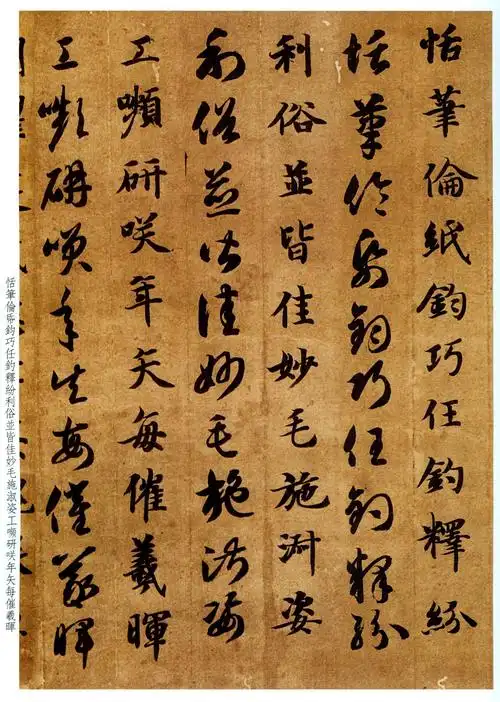 恬筆倫紙鈞巧任釣釋紛
恬筆倫紙鈞巧任釣釋紛
利俗並皆佳妙毛施淑姿
利俗並皆佳妙毛施淑姿
工嚬研咲年矢每催羲暉
工嚬研咲年矢每催羲暉
恬筆倫帋鈞巧任釣釋紛利俗並皆佳妙毛施淑姿工嚬研咲年矢每催羲暉